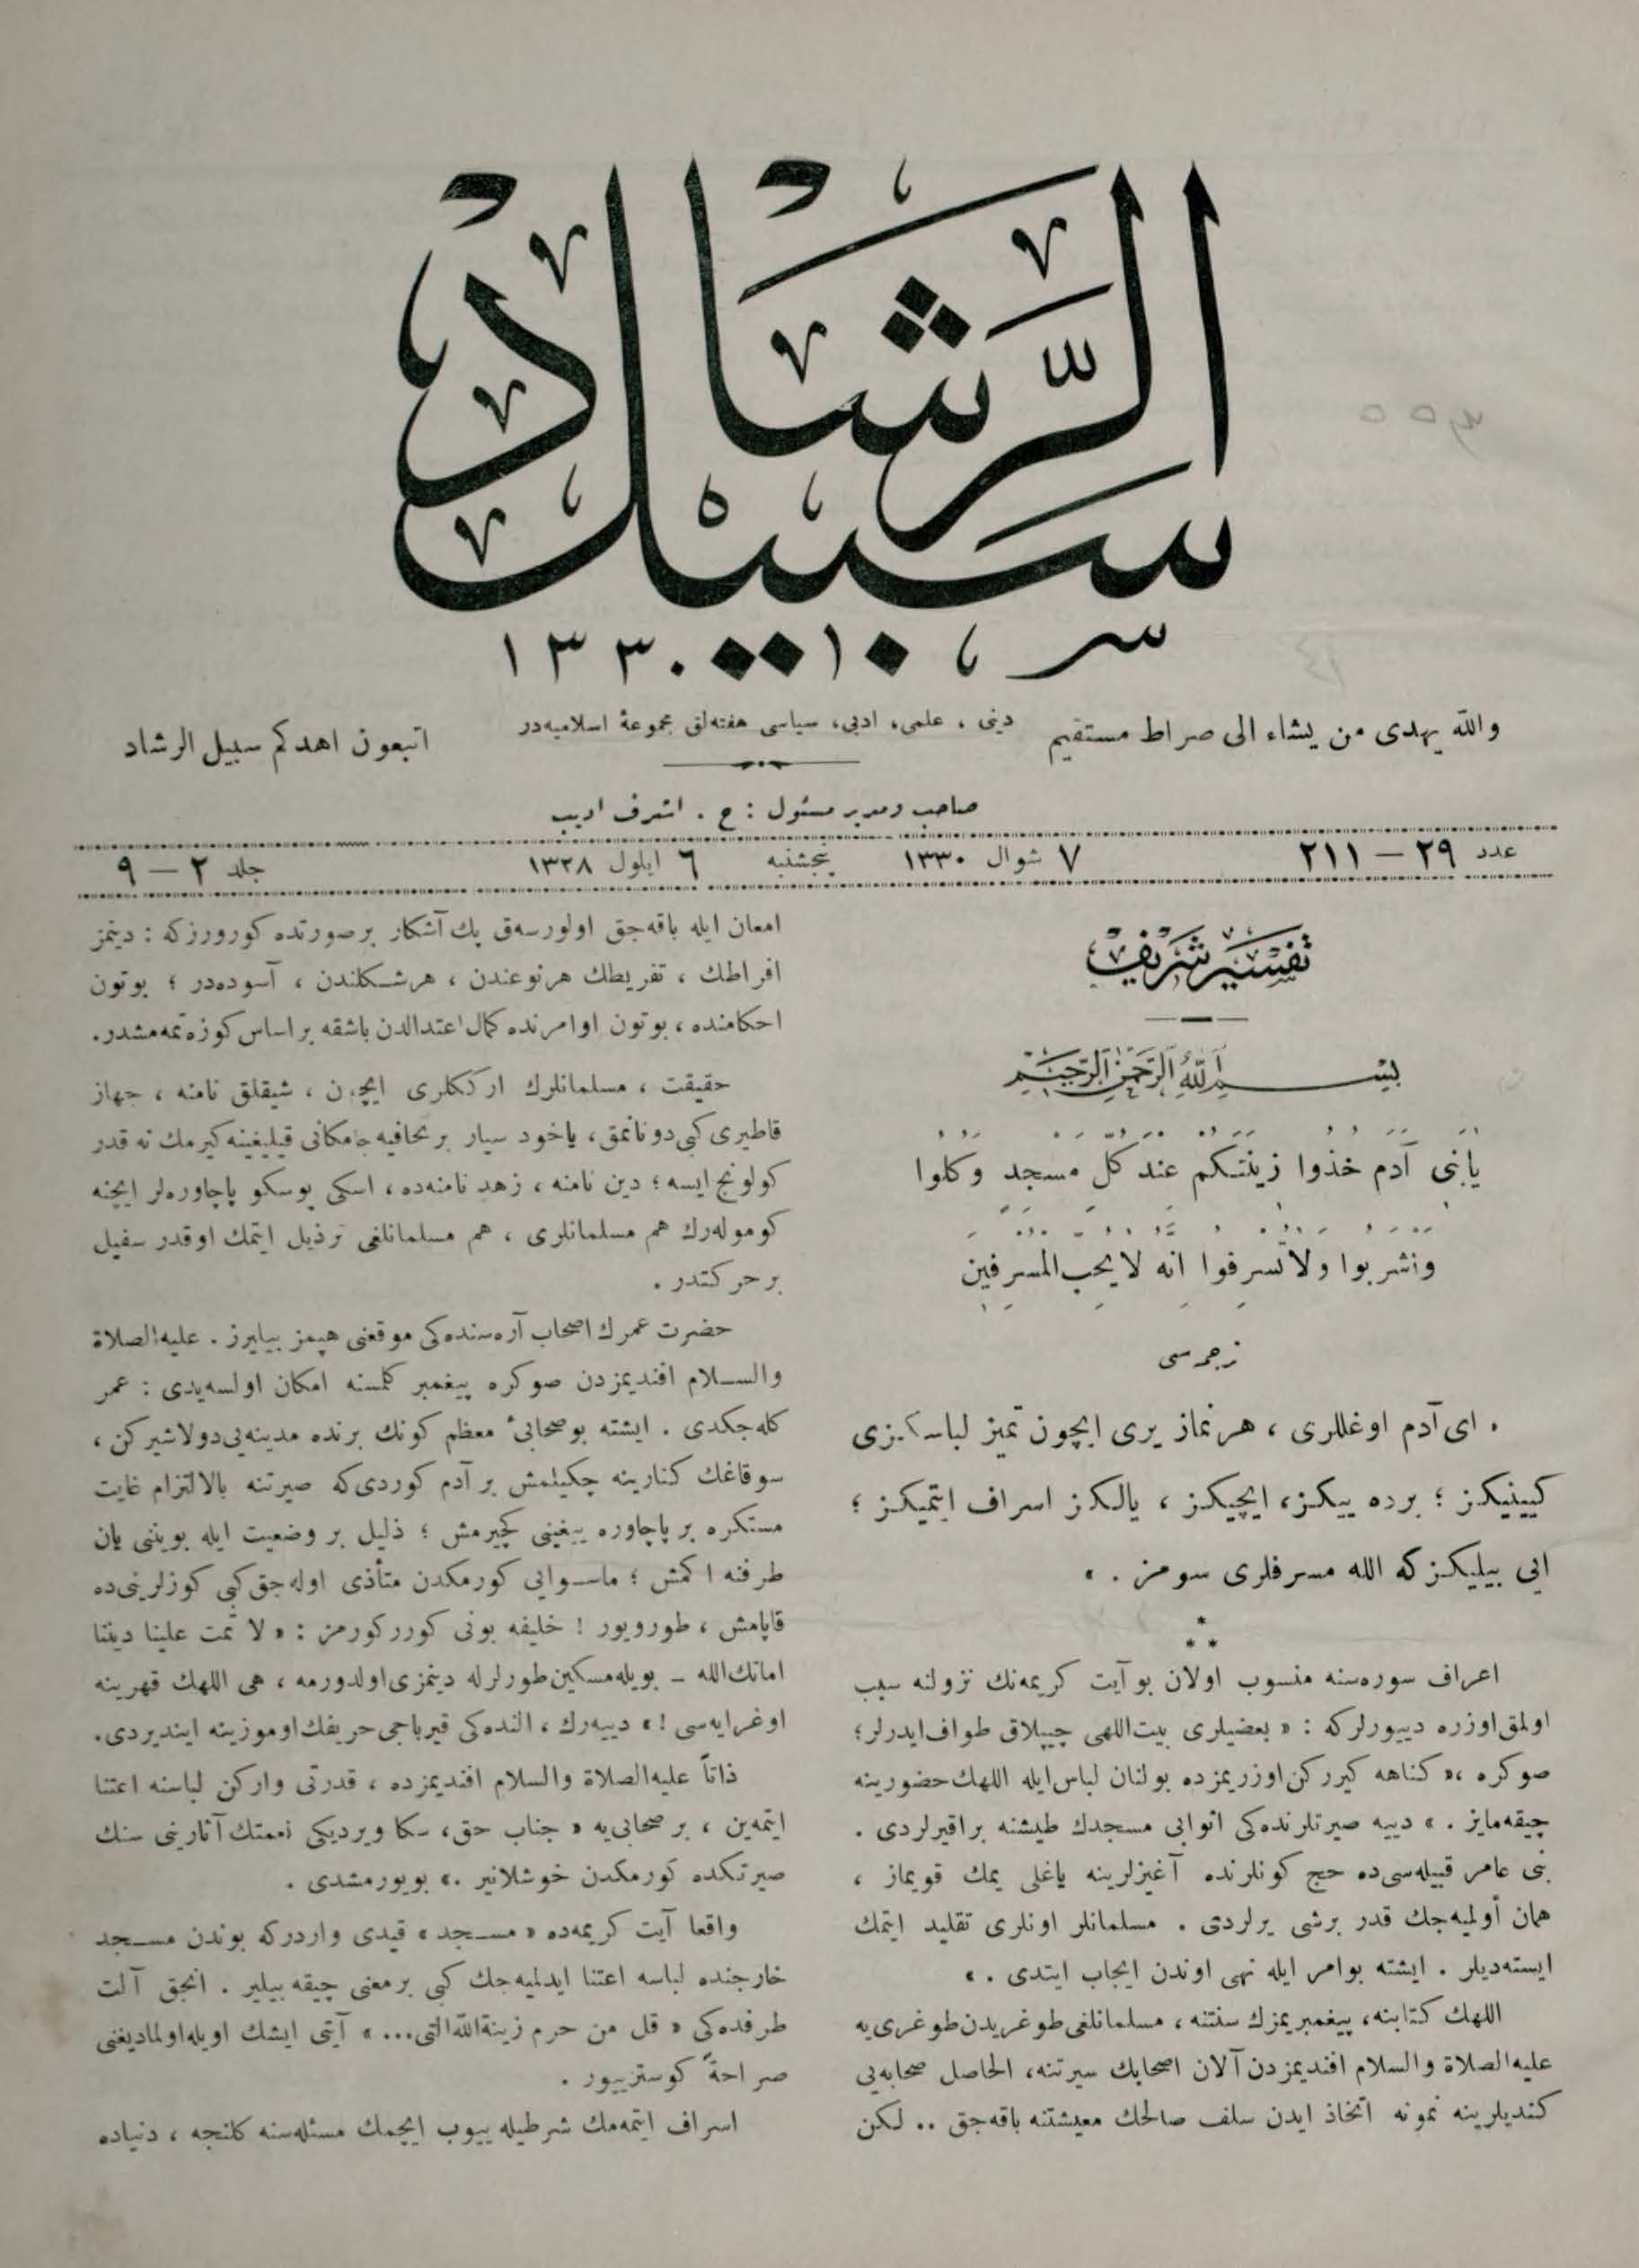 سبيل الرشاد
١٣٣٠
والله يهدى من يشاء الى صراط مستقيم
دينى ، علمى، ادبى، سياسى هفته‌لق مجموعهٔ اسلاميه‌در
اتبعون اهدكم سبيل الرشاد
صاحب ومدير مسئول : ح . اشرف اديب
عدد ٢٩ — ٢١١
٧ شوال ١٣٣٠
پنجشنبه
٦ ايلول ١٣٢٨
جلد ٢ — ٩
تفسير شريف
بسم الله الرحمن الرحيم
يابنى آدم خذوا زينتكم عند كل مسجد وكلوا
واشربوا ولا تسرفوا انه لا يحب المسرفين
ترجمه‌سى
« اى آدم اوغللرى ، هر نماز يرى ايچون تميز لباسكزى
كيينيكز ؛ برده ييكز، ايچيكز ، يالكز اسراف ايتميكز ؛
ايى بيليكز كه الله مسرفلرى سومز . »
* * *
اعراف سوره‌سنه منسوب اولان بو آيت كريمه‌نك نزولنه سبب
اولمق اوزره دييورلركه : « بعضيلرى بيت‌اللهى چيپلاق طواف ايدرلر؛
صوكره ،« كناهه كيرركن اوزريمزده بولنان لباس ايله اللهك حضورينه
چيقه‌مايز . » دييه صيرتلرنده‌كى اثوابى مسجدك طيشنه براقيرلردى .
بنى عامر قبيله‌سى‌ده حج كونلرنده آغيزلرينه ياغلى يمك قويماز ،
همان أولميه‌جك قدر برشى يرلردى . مسلمانلر اونلرى تقليد ايتمك
ايسته‌ديلر . ايشته بوامر ايله نهى اوندن ايجاب ايتدى . »
اللهك كتابنه، پيغمبريمزك سنتنه ، مسلمانلغى طوغريدن طوغرى‌يه
عليه‌الصلاة والسلام افنديمزدن آلان اصحابك سيرتنه، الحاصل صحابه‌يى
كنديلرينه نمونه اتخاذ ايدن سلف صالحك معيشتنه باقه‌جق .. لكن
امعان ايله باقه‌جق اولورسه‌ق پك آشكار بر صورتده كورورزكه : دينمز
افراطك ، تفريطك هر نوعندن ، هر شكلندن ، آسوده‌در ؛ بوتون
احكامنده ، بوتون اوامرنده كمال اعتدالدن باشقه بر اساس كوزه‌تمه‌مشدر.
حقيقت ، مسلمانلرك ارككلرى ايچون ، شيقلق نامنه ، جهاز
قاطيرى كبى دونانمق، ياخود سيار بر تحافيه جامكانى قيليغينه كيرمك نه قدر
كولونج ايسه ؛ دين نامنه ، زهد نامنه‌ده ، اسكى پوسكو پاچاوره‌لر ايچنه
كومولەرك هم مسلمانلرى ، هم مسلمانلغى ترذيل ايتمك اوقدر سفيل
بر حركتدر .
حضرت عمرك اصحاب آره‌سنده‌كى موقعنى هپمز بيليرز . عليه‌الصلاة
والسلام افنديمزدن صوكره پيغمبر كلمسنه امكان اولسه‌يدى : عمر
كله‌جكدى . ايشته بو صحابىٔ معظم كونك برنده مدينه‌يى دولاشيركن ،
سوقاغك كنارينه چكيلمش بر آدم كوردى‌كه صيرتنه بالالتزام غايت
مستكره بر پاچاوره ييغينى كچيرمش ؛ ذليل بر وضعيت ايله بويننى يان
طرفنه اكمش ؛ ماسوايى كورمكدن متأذى اوله‌جق كبى كوزلرينى‌ده
قاپامش ، طورويور ! خليفه بونى كورركورمز : « لا تمت علينا ديننا
اماتك‌الله – بويله مسكين طورلرله دينمزى اولدورمه ، هى اللهك قهرينه
اوغرايه‌سى ! » دييه‌رك ، النده‌كى قيرباجى حريفك اوموزينه اينديردى.
ذاتاً عليه‌الصلاة والسلام افنديمزده ، قدرتى واركن لباسنه اعتنا
ايتمه‌ين ، بر صحابى‌يه « جناب حق، سكا ويرديكى نعمتك آثارينى سنك
صيرتكده كورمكدن خوشلانير .» بويورمشدى .
واقعا آيت كريمه‌ده « مسجد » قيدى واردركه بوندن مسجد
خارجنده لباسه اعتنا ايدلميه‌جك كبى بر معنى چيقه بيلير . انجق آلت
طرفده‌كى « قل من حرم زينةالله‌التى... » آيتى ايشك اويله اولماديغنى
صراحةً كوسترييور .
اسراف ايتمه‌مك شرطيله ييوب ايچمك مسئله‌سنه كلنجه ، دنياده